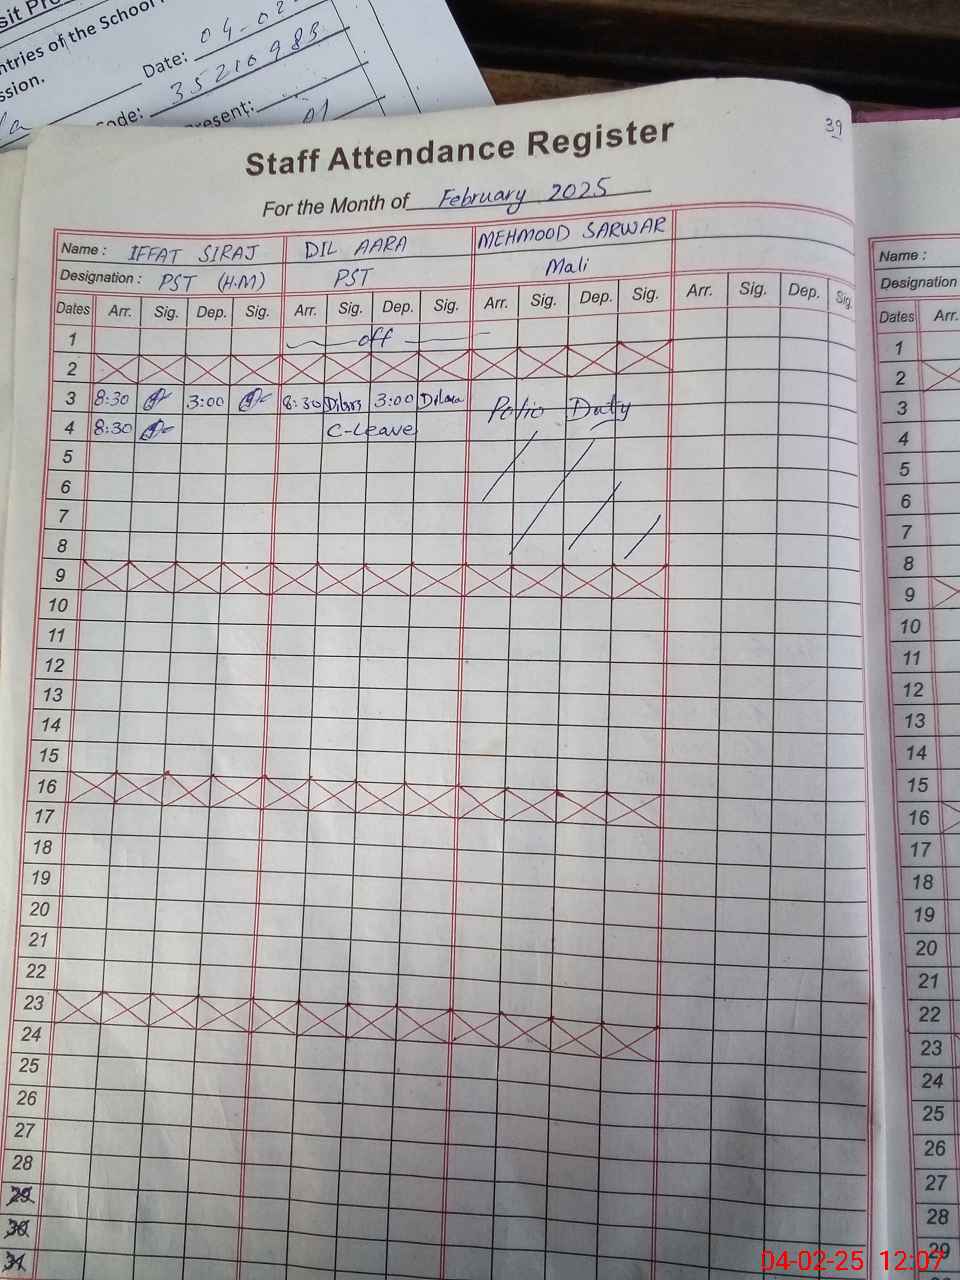 ntries of the School
ssion.
Date: 04-02
ode: 35210983
resent: 01
39
Staff Attendance Register
For the Month of February 2025
Name : IFFAT SIRAJ DIL AARA MEHMOOD SARWAR
Designation : PST (H.M) PST Mali
Dates Arr. Sig. Dep. Sig. Arr. Sig. Dep. Sig. Arr. Sig. Dep. Sig. Arr. Sig. Dep. Sig.
1 off
2
3 8:30 3:00 8:30 3:00 Polio Duty
4 8:30 C-Leave
5
6
7
8
9
10
11
12
13
14
15
16
17
18
19
20
21
22
23
24
25
26
27
28
29
30
31
Name :
Designation
Dates Arr.
1
2
3
4
5
6
7
8
9
10
11
12
13
14
15
16
17
18
19
20
21
22
23
24
25
26
27
28
29
04-02-25 12:07